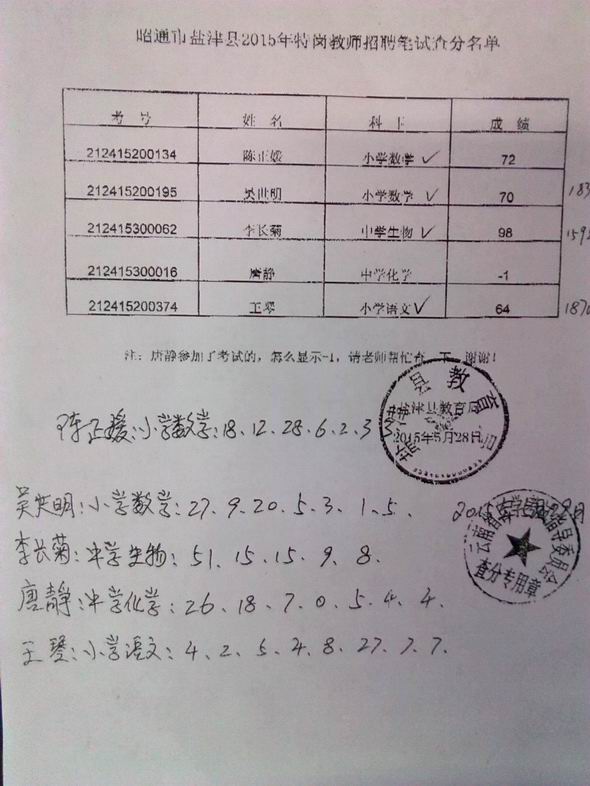 昭通市盐津县2015年特岗教师招聘笔试查分名单
考 号 姓 名 科 目 成 绩
212415200134 陈正媛 小学数学 ✓ 72
212415200195 吴世明 小学数学 ✓ 70 183
212415300062 李长菊 中学生物 ✓ 98 159
212415300016 唐静 中学化学 -1
212415200374 王琴 小学语文 ✓ 64 187
注：唐静参加了考试的，怎么显示-1，请老师帮忙查一下，谢谢！
盐津县教育局
盐津县教育局
2015年5月28日
陈正媛:小学数学:18、12、28、6、2、3
吴世明:小学数学:27、9、20、5、3、1、5、
2015年
查分专用章
李长菊:中学生物:51、15、15、9、8、
唐静:中学化学:26、18、7、0、5、4、4、
王琴:小学语文:4、2、5、4、8、27、7、7、